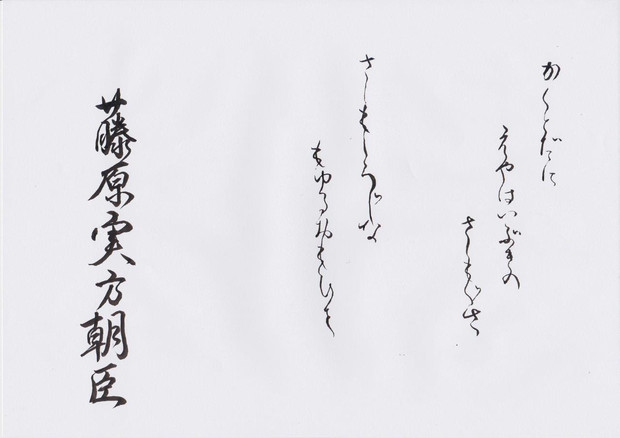 かくとだに
えやはいぶきの
さしもぐさ
さしもしらじな
もゆるおもひを
藤原実方朝臣